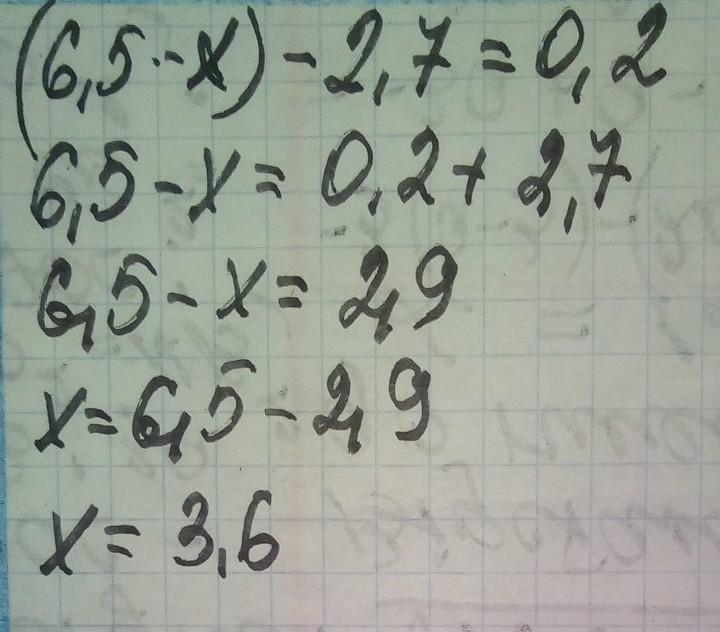 (6,5 - x) - 2,7 = 0,2
6,5 - x = 0,2 + 2,7
6,5 - x = 2,9
x = 6,5 - 2,9
x = 3,6